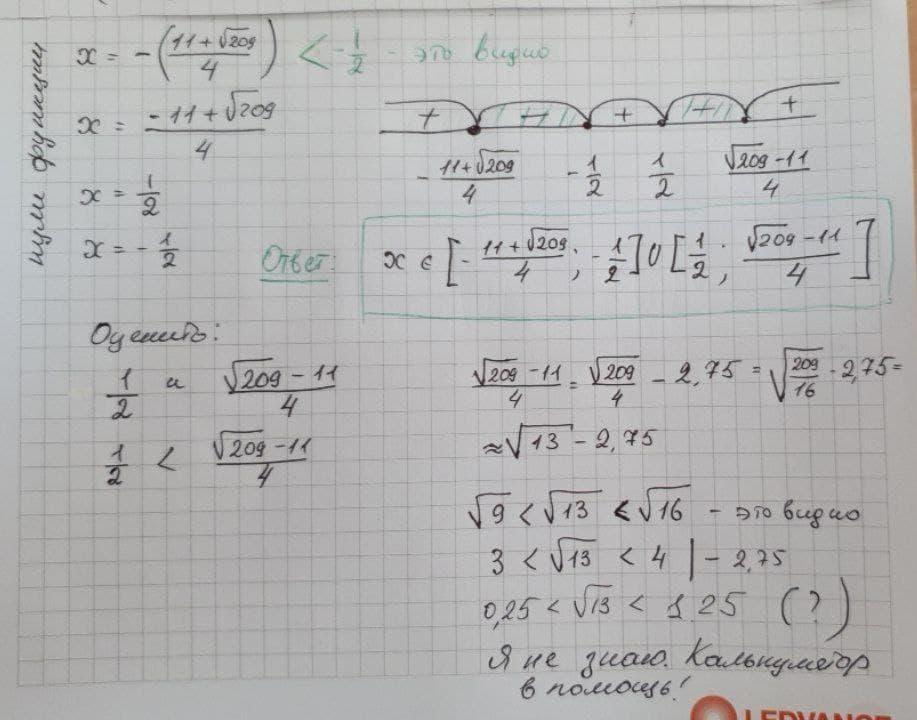 нули функции
x = -((11+√209)/4) < -1/2 - это видно
x = (-11+√209)/4
x = 1/2
x = -1/2
+ + +
-(11+√209)/4 -1/2 1/2 (√209-11)/4
Ответ: x ∈ [-(11+√209)/4; -1/2] U [1/2; (√209-11)/4]
Оценить:
1/2 и (√209-11)/4
1/2 < (√209-11)/4
(√209-11)/4 = √209/4 - 2,75 = √(209/16) - 2,75 =
≈ √13 - 2,75
√9 < √13 < √16 - это видно
3 < √13 < 4 | - 2,75
0,25 < √13 < 1.25 (?)
Я не знаю. Калькулятор
в помощь!
LEDVANCE